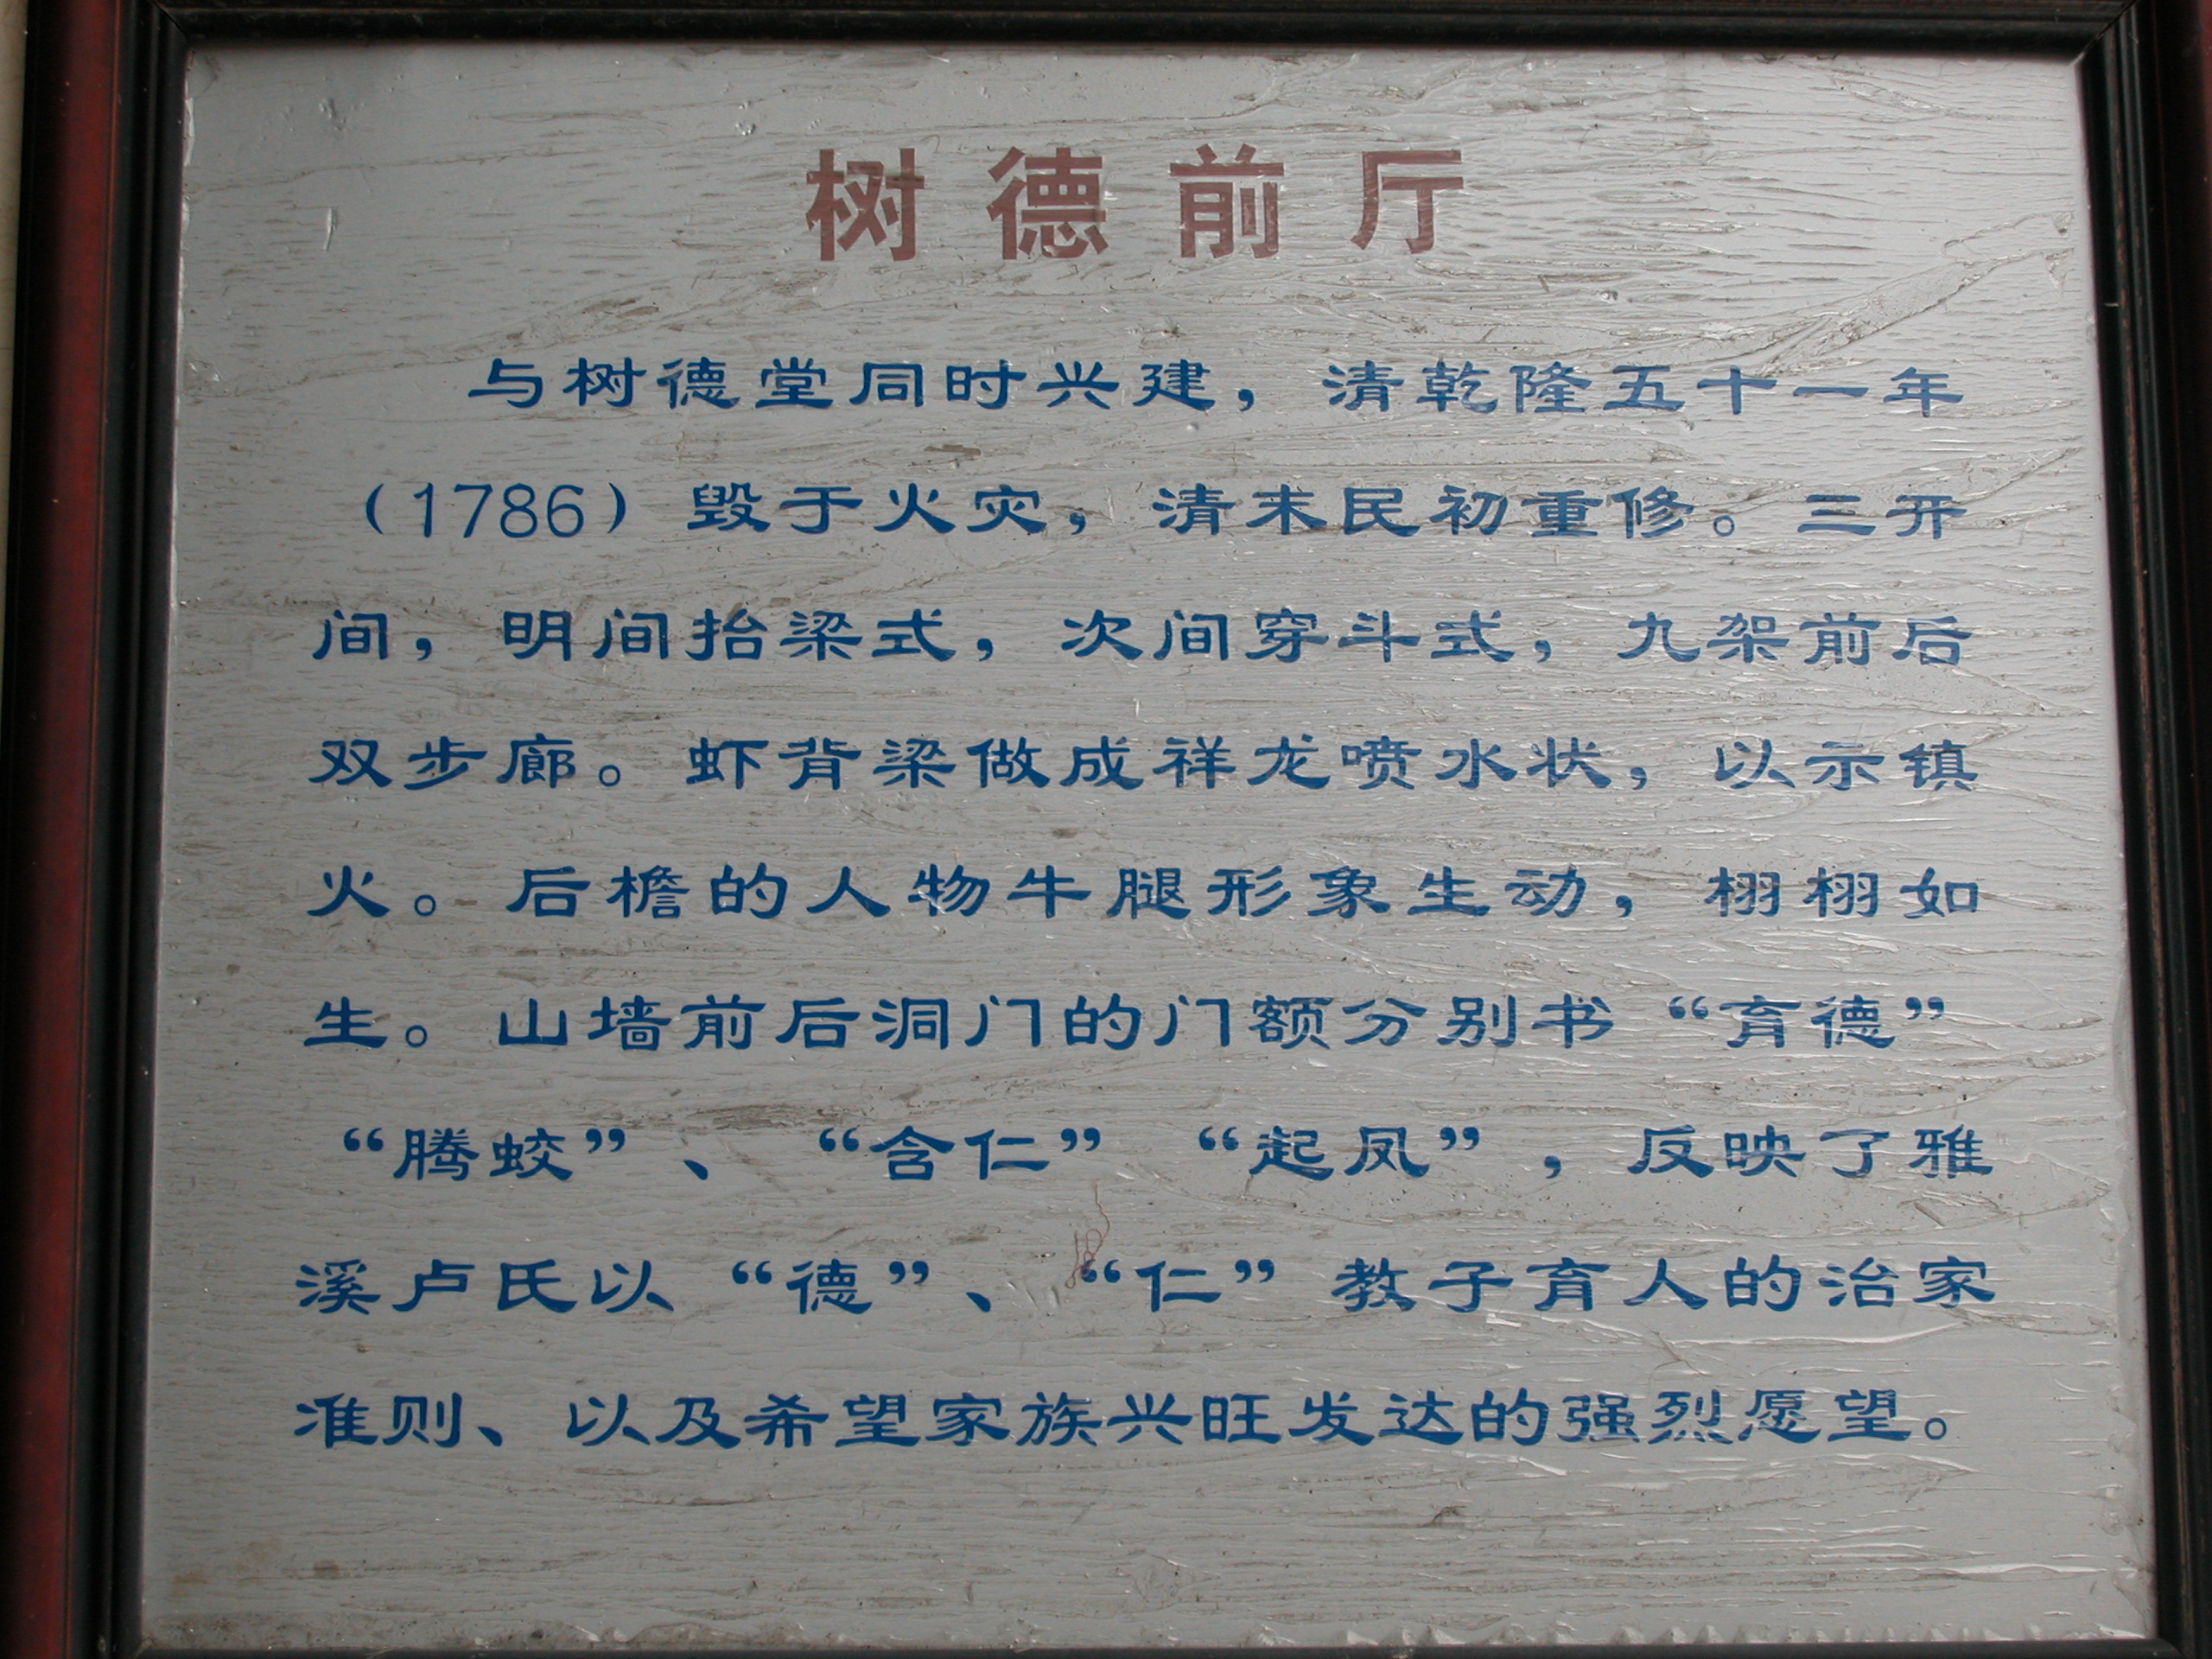 树德前厅
与树德堂同时兴建，清乾隆五十一年
（1786）毁于火灾，清末民初重修。三开
间，明间抬梁式，次间穿斗式，九架前后
双步廊。虾背梁做成祥龙喷水状，以示镇
火。后檐的人物牛腿形象生动，栩栩如
生。山墙前后洞门的门额分别书“育德”
“腾蛟”、“含仁”“起凤”，反映了雅
溪卢氏以“德”、“仁”教子育人的治家
准则、以及希望家族兴旺发达的强烈愿望。